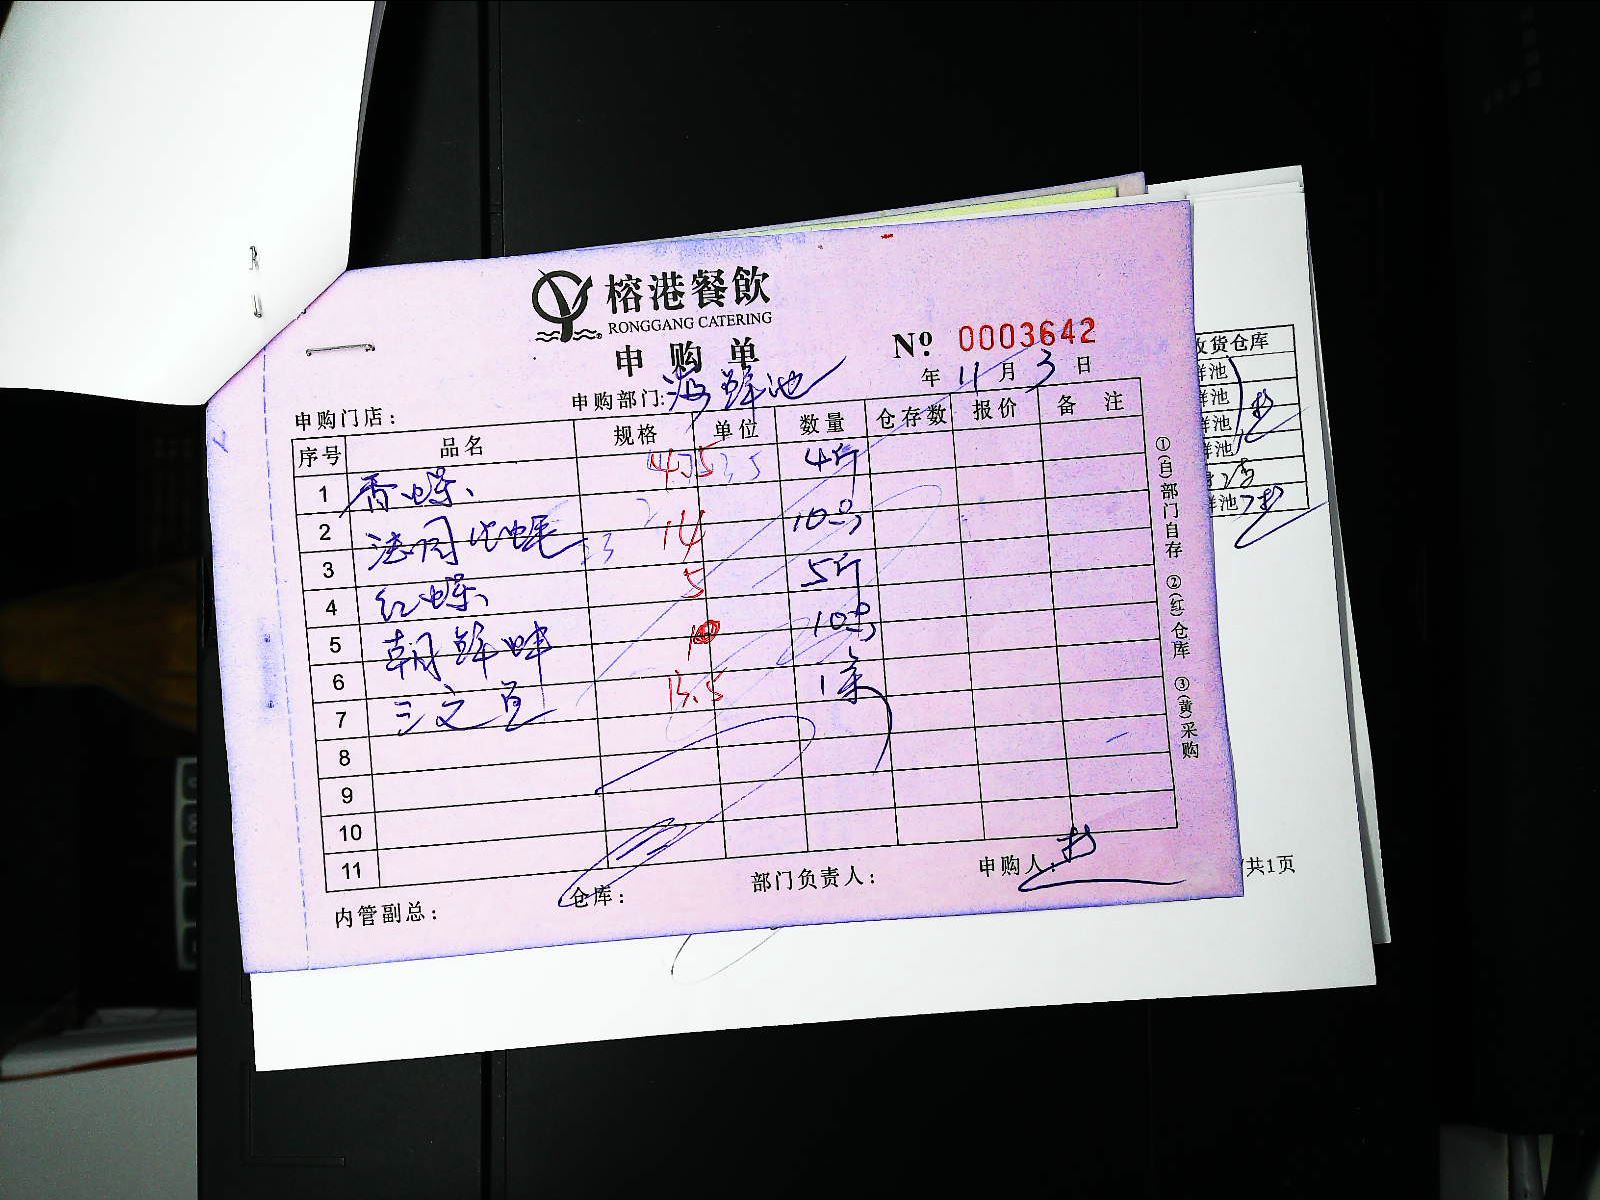 榕港餐飲
RONGGANG CATERING
申购单
№ 0003642
年 11 月 3 日
申购门店：
申购部门: 海鲜池
序号 品名 规格 单位 数量 仓存数 报价 备 注
1 香螺 4.5 3.5 4斤
2 法国生蚝 14 10只
3 红螺 5 5斤
4 朝鲜蚌 10 10只
5 三文鱼 13.5 1条
6
7
8
9
10
11
内管副总：
仓库：
部门负责人：
申购人：
①(白)部门自存 ②(红)仓库 ③(黄)采购
收货仓库
鲜池
鲜池
鲜池
鲜池
鲜池
/共1页